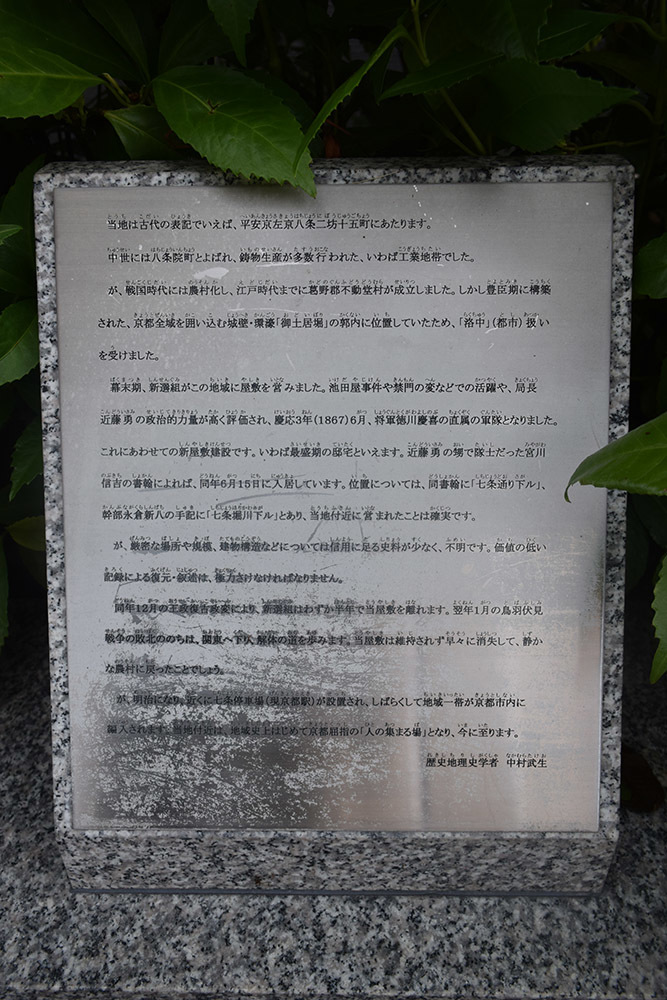 当地は古代の表記でいえば、平安京左京八条二坊十五町にあたります。
中世には八条院町とよばれ、鋳物生産が多数行われた、いわば工業地帯でした。
が、戦国時代には農村化し、江戸時代までに葛野郡不動堂村が成立しました。しかし豊臣期に構築
された、京都全域を囲い込む城壁・環濠「御土居堀」の郭内に位置していたため、「洛中」(都市)扱い
を受けました。
幕末期、新選組がこの地域に屋敷を営みました。池田屋事件や禁門の変などでの活躍や、局長
近藤勇の政治的力量が高く評価され、慶応3年(1867)6月、将軍徳川慶喜の直属の軍隊となりました。
これにあわせての新屋敷建設です。いわば最盛期の邸宅といえます。近藤勇の甥で隊士だった宮川
信吉の書翰によれば、同年6月15日に入居しています。位置については、同書翰に「七条通り下ル」、
幹部永倉新八の手記に「七条堀川下ル」とあり、当地付近に営まれたことは確実です。
が、厳密な場所や規模、建物構造などについては信用に足る史料が少なく、不明です。価値の低い
記録による復元・叙述は、極力さけなければなりません。
同年12月の王政復古政変により、新選組はわずか半年で当屋敷を離れます。翌年1月の鳥羽伏見
戦争の敗北ののちは、関東へ下り、解体の道を歩みます。当屋敷は維持されず早々に消失して、静か
な農村に戻ったことでしょう。
が、明治になり、近くに七条停車場(現京都駅)が設置され、しばらくして地域一帯が京都市内に
編入されます。当地付近は、地域史上はじめて京都屈指の「人の集まる場」となり、今に至ります。
歴史地理史学者 中村武生